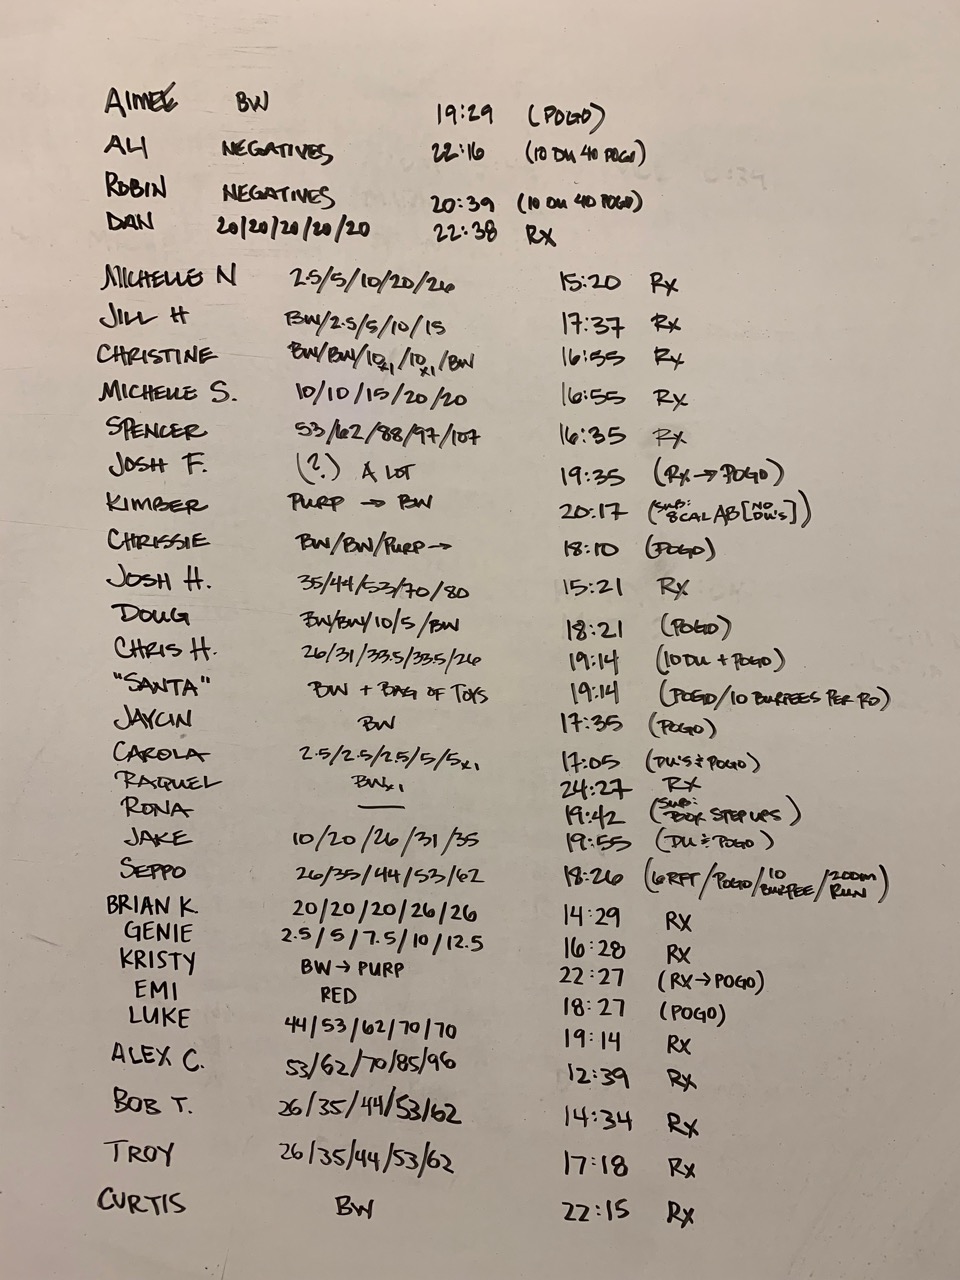 AIMEE BW 19:29 (POGO)
ALI NEGATIVES 22:16 (10 DU 40 POGO)
ROBIN NEGATIVES 20:39 (10 DU 40 POGO)
DAN 20/20/20/20/20 22:38 RX
MICHELLE N 2.5/5/10/20/26 15:20 RX
JILL H BW/2.5/5/10/15 17:37 RX
CHRISTINE BW/BW/10x1/10x1/BW 16:55 RX
MICHELLE S. 10/10/15/20/20 16:55 RX
SPENCER 53/62/88/97/107 16:35 RX
JOSH F. (?) A LOT 19:35 (RX→POGO)
KIMBER PURP → BW 20:17 (SUB: 8CAL AB [NO DU'S])
CHRISSIE BW/BW/PURP→ 18:10 (POGO)
JOSH H. 35/44/53/70/80 15:21 RX
DOUG BW/BW/10/5/BW 18:21 (POGO)
CHRIS H. 26/31/33.5/33.5/26 19:14 (10DU + POGO)
"SANTA" BW + BAG OF TOYS 19:14 (POGO/10 BURPEES PER RD)
JAYCIN BW 17:35 (POGO)
CAROLA 2.5/2.5/2.5/5/5x1 17:05 (DU'S & POGO)
RAQUEL BWx1 24:27 RX
RONA — 19:42 (SUB: BOX STEP UPS)
JAKE 10/20/26/31/35 19:55 (DU & POGO)
SEPPO 26/35/44/53/62 18:26 (6RFT/POGO/10 BURPEE/200M RUN)
BRIAN K. 20/20/20/26/26 14:29 RX
GENIE 2.5/5/7.5/10/12.5 16:28 RX
KRISTY BW→PURP 22:27 (RX→POGO)
EMI RED 18:27 (POGO)
LUKE 44/53/62/70/70 19:14 RX
ALEX C. 53/62/70/85/96 12:39 RX
BOB T. 26/35/44/53/62 14:34 RX
TROY 26/35/44/53/62 17:18 RX
CURTIS BW 22:15 RX